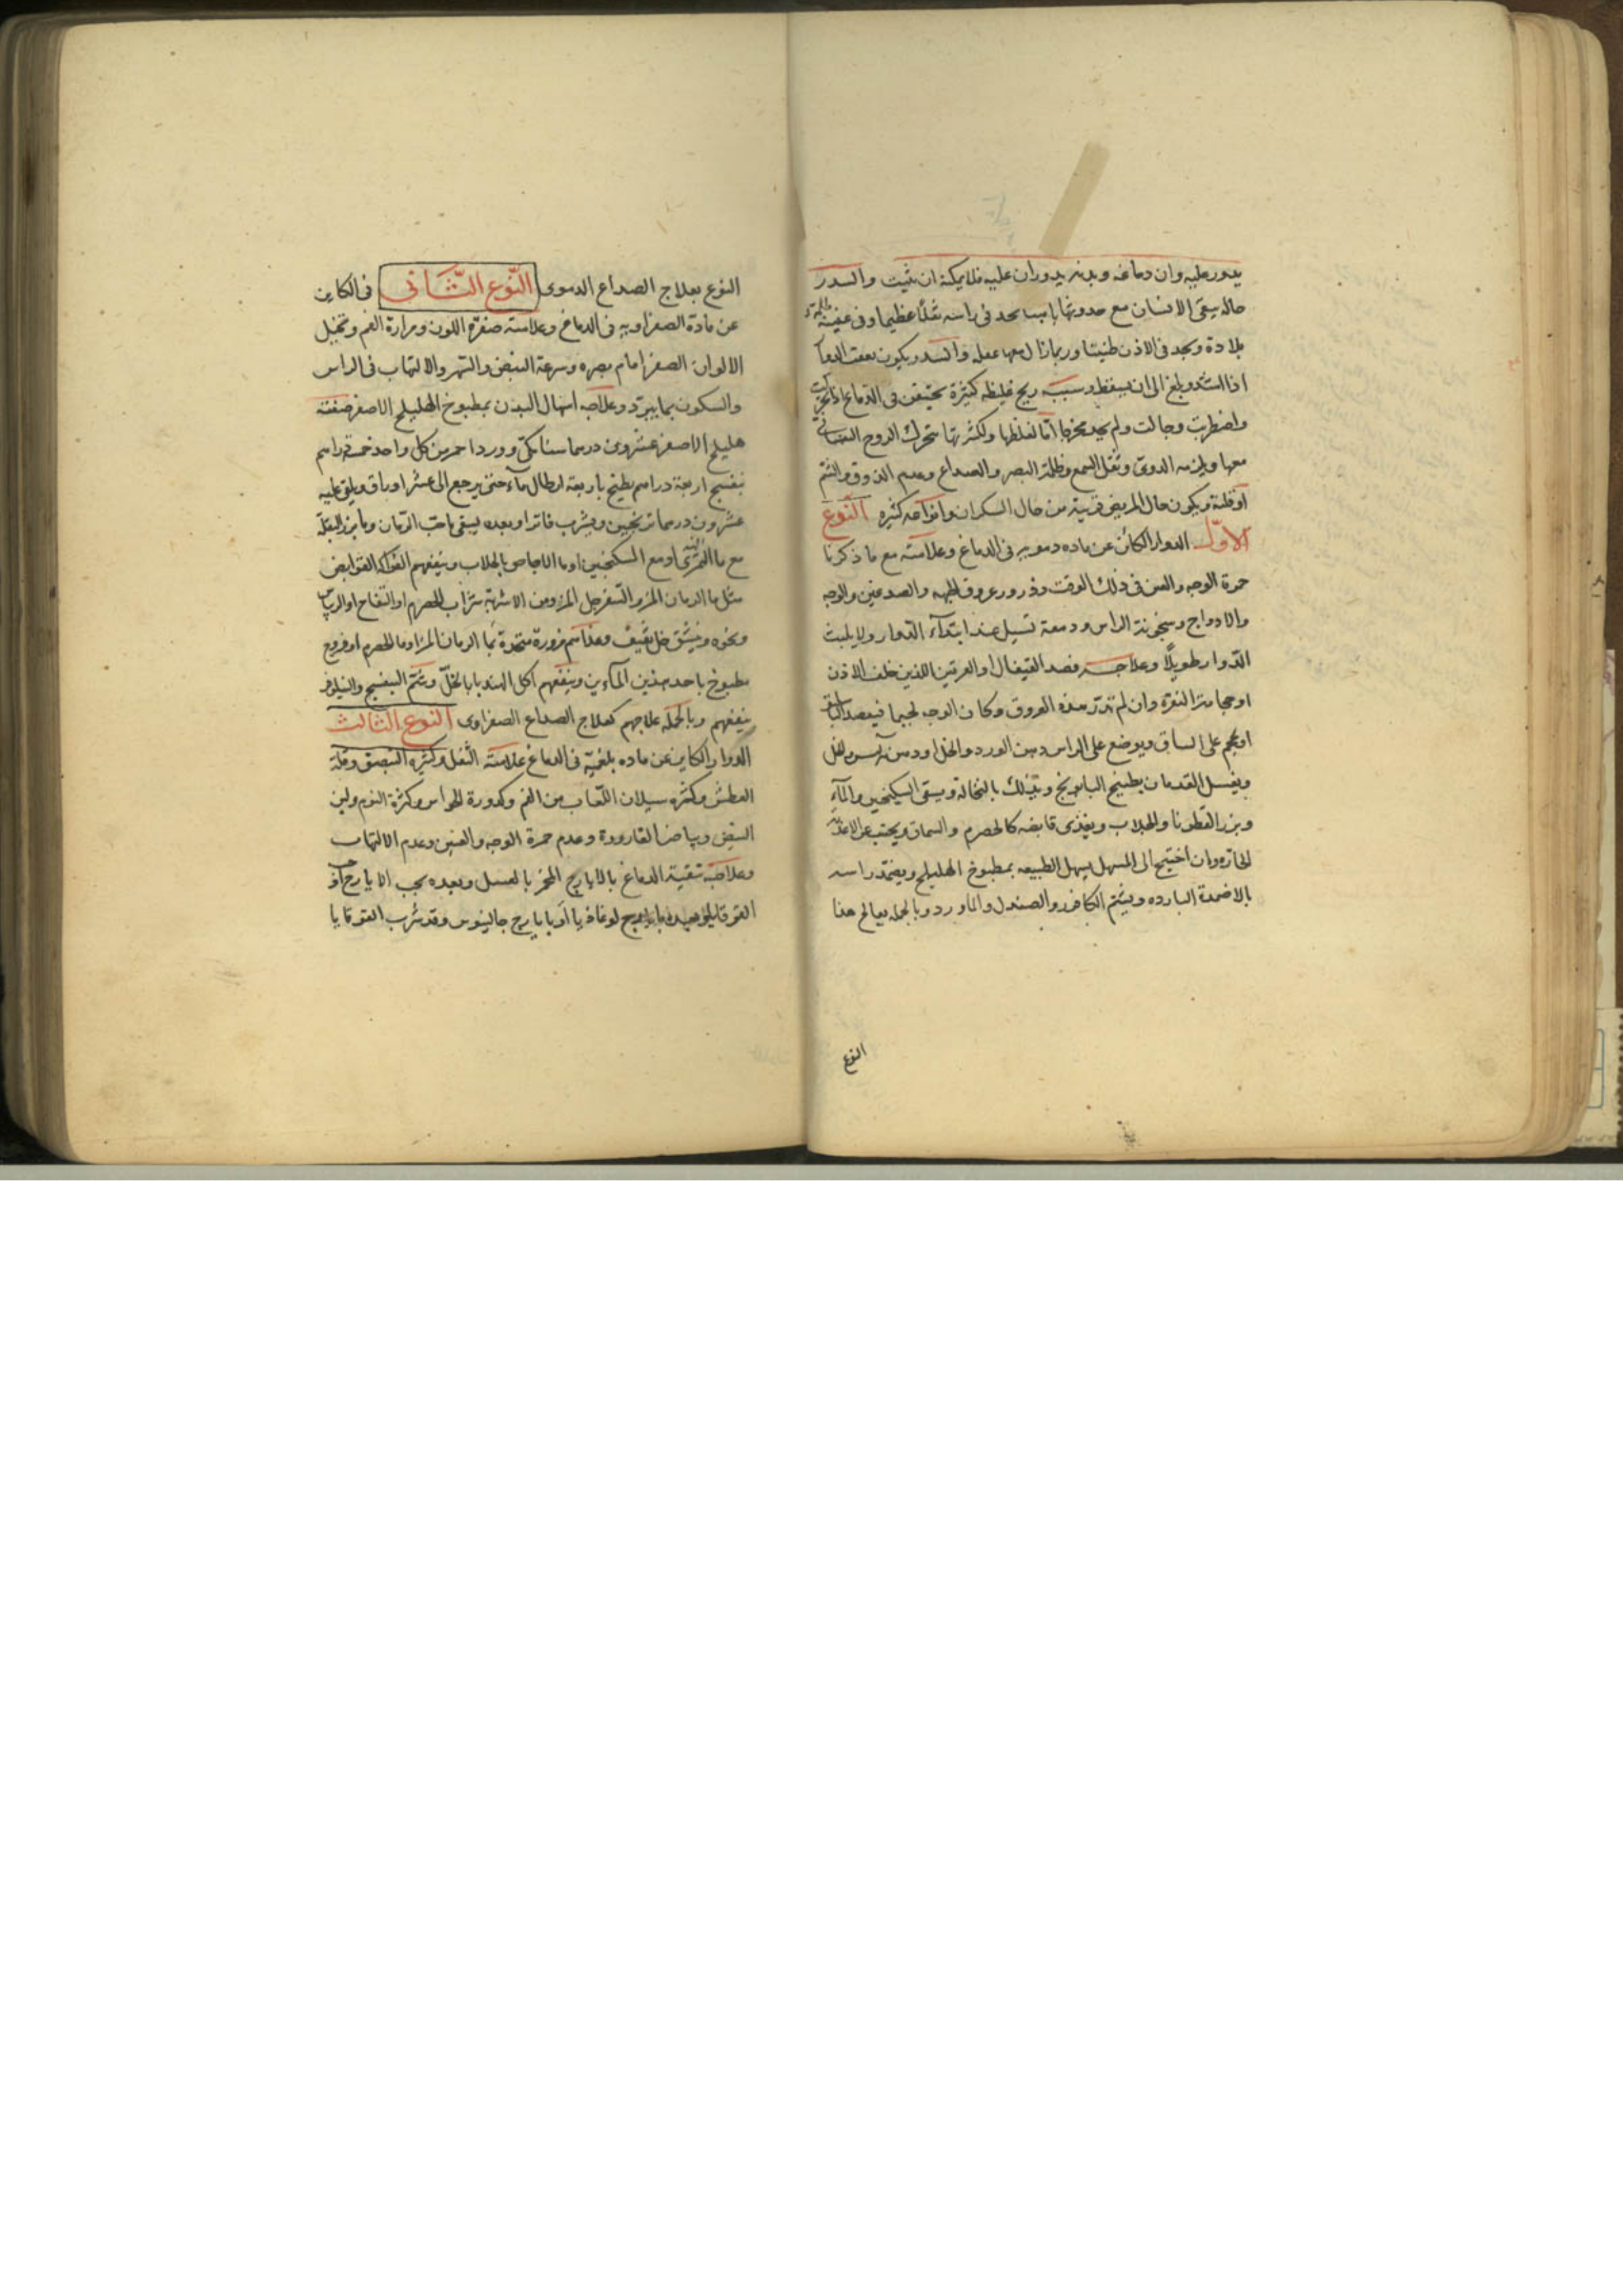 يدور عليه وان دماغه وبدنه يدوران عليه فلا يمكنه ان يثبت والسدر
حالة يبقى الانسان مع حدوثها باهتا يجد فى راسه ثقلا عظيما وفى عينيه ظلمة و
بلادة ويجد فى الاذن طنينا وربما زال معها عقله والسدر يكون بعقب الدوار
اذا اشتد وبلغ الى ان يسقط وسببه ريح غليظه كثيرة تحتقن فى الدماغ اذا تحركت
واضطربت وجالت ولم يجد مخرجا اما لغلظها ولكثرتها تتحرك الروح النفسانى
معها ويلزمه الدوى وثقل السمع وظلمة البصر والصداع وعدم الذوق والشم
او قلته ويكون حال المريض قريبة من حال السكران وانواعه كثيره النوع
الاول الدوار الكائن عن ماده دمويه فى الدماغ وعلامته مع ما ذكرنا
حمرة الوجه والعين فى ذلك الوقت ودرور عروق الجبهه والصدغين والوجه
والاوداج وسخونة الراس ودمعة تسيل عند ابتداء الدوار ولا يلبث
الدوار طويلا وعلاجه فصد القيفال او العرقين اللذين خلف الاذن
او حجامة النقرة وان لم تدر هذه العروق وكان الوجع لحيما فيفصد الباسليق
او يحجم على الساق ويوضع على الراس دهن الورد والخل او دهن آس وخل
ويغسل القدمان بطبيخ البابونج وتدلك بالنخالة ويسقى السكنجبين والماء
وبزر القطونا والجلاب ويغذى قابضه كالحصرم والسماق ويجتنب عن الاغذية
الحاره وان احتيج الى المسهل يسهل الطبيعه بمطبوخ الهليلج ويضمد راسه
بالاضمدة البارده ويشم الكافور والصندل والماورد وبالجمله يعالج هذا
النوع
النوع بعلاج الصداع الدموى النوع الثانى فى الكاين
عن مادة الصفراويه فى الدماغ وعلامته صفرة اللون ومرارة الفم وتخيل
الالوان الصفر امام بصره وسرعة النبض والسهر والالتهاب فى الراس
والسكون بما يبرد وعلاجه اسهال البدن بمطبوخ الهليلج الاصفر صفته
هليلج الاصفر عشرون درهما سنامكى وورد احمر من كل واحد خمسة دراهم
بنفسج اربعة دراهم يطبخ باربعة ارطال ماء حتى يرجع الى عشر اواق ويلقى عليه
عشرون درهما ترنجبين ويشرب فاترا وبعده يسقى ماء حب الرمان وما بزر البقلة
مع ما التمر الهندى او مع السكنجبين او ما الاجاص بالجلاب وينفعهم الفواكه القوابض
مثل ما الرمان المز والسفرجل المز ومن الاشربة شراب الحصرم او التفاح او الريباس
ونحوه وينشق خل ثقيف وغذاهم مزورة متخذة بما الرمان المز او ما الحصرم او فروج
مطبوخ باحد هذين الماءين وينفعهم اكل الهندبا بالخل وشم البنفسج والنيلوفر
ينفعهم وبالجمله علاجهم كعلاج الصداع الصفراوى النوع الثالث
الدوار الكاين عن ماده بلغميه فى الدماغ علامته الثقل وكثره التبصق وقلة
العطش وكثره سيلان اللعاب من الفم وكدورة الحواس وكثرة النوم ولين
النبض وبياض القارورة وعدم حمرة الوجه والعين وعدم الالتهاب
وعلاجه تنقية الدماغ بالايارج المخمر بالعسل وبعده بحب الايارج او حب
القوقايا وبعده بايارج لوغاذيا او بايارج جالينوس وقد شرب القوقايا